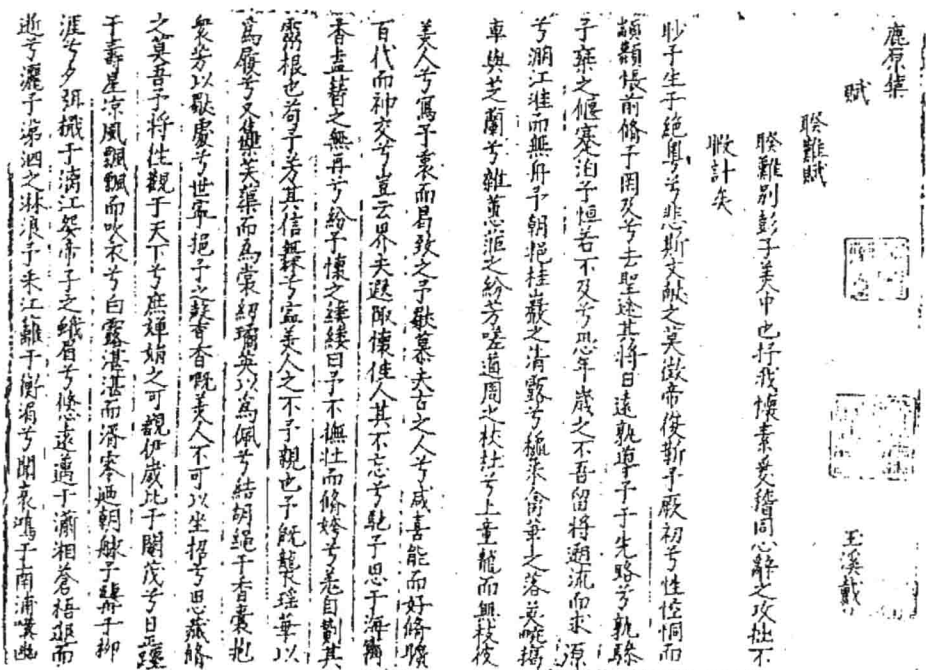 鹿原集
玉溪戴
賦
睽難賦
睽難別彭子美中也抒我懷素爰稽同心辭之攻拙不
暇計矣
眇予生于絕粵兮悲斯文獻之莫徵帝俊靳予厥初兮性恇恫而
顓顓悵前脩予罔及兮去聖途其將日遠孰導予于先路兮孰驂
子棄之偃蹇汩予恒若不及兮恐年歲之不吾留將遡流而求源
兮溯江淮而無舟予朝挹桂巖之清露兮
車與芝蘭兮雜蕙茝之紛芳嗟道周之杕杜兮上童龍而無枝彼
美人兮寫予衷而曷致之予歇慕夫古之人兮咸喜能而好脩曠
百代而神交兮豈云界夫遐陬懷佳人其不忘兮馳予思于海
香盍替之無再兮紛予懷之縷縷曰予不撫壯而脩姱兮
靈根也苟予芳其信無沫兮寧美人之不予親也予既襲瑤華以
為履兮又集芙蕖而為裳紉瓊英以為佩兮結胡繩于香囊抱
眾芳以歇處兮世寧挹予之馥香嘅美人不可以坐招兮思葳脩
之莫吾予將往觀于天下兮庶嬋娟之可覯伊歲比于閹茂兮日
于壽星涼風飄飄而吹衣兮白露湛湛而渧零
涯兮夕弭檝于漓江癸帝子之蛾眉兮倏遠邁于瀟湘蒼梧
逝兮灑予涕泗之淋浪予采江蘺于衡湄兮聞哀鴻于南浦嘆幽